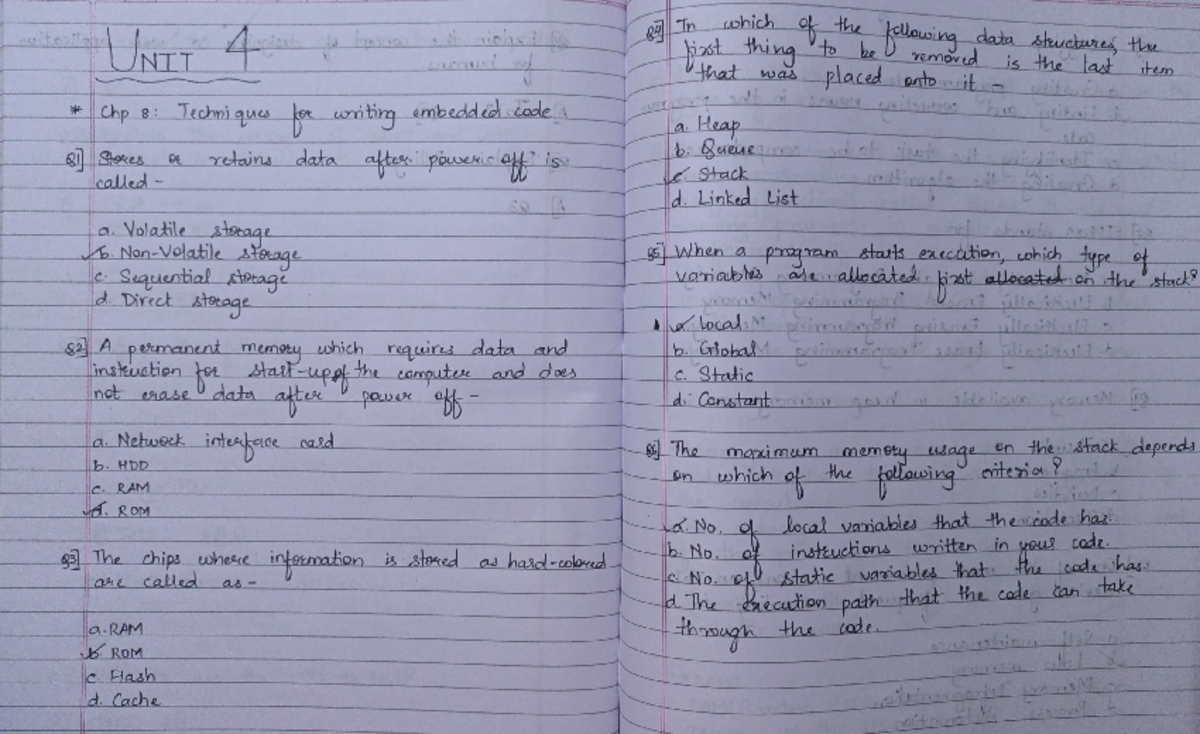 UNIT 4
* Chp 8: Techniques for writing embedded code
Q1] Stores or retains data after power off is
called -
a. Volatile storage
b. Non-Volatile storage
c. Sequential storage
d. Direct storage
Q2] A permanent memory which requires data and
instruction for start-up of the computer and does
not erase data after power off -
a. Network interface card
b. HDD
c. RAM
d. ROM
Q3] The chips where information is stored as hard-colored
are called as -
a. RAM
b. ROM
c. Flash
d. Cache
Q4] In which of the following data structures, the
first thing to be removed is the last item
that was placed onto it -
a. Heap
b. Queue
c. Stack
d. Linked List
Q5] When a program starts execution, which type of
variables are allocated first allocated on the stack?
a. Local
b. Global
c. Static
d. Constant
Q6] The maximum memory usage on the stack depends
on which of the following criteria?
a. No. of local variables that the code has.
b. No. of instructions written in your code.
c. No. of static variables that the code has.
d. The execution path that the code can take
through the code.